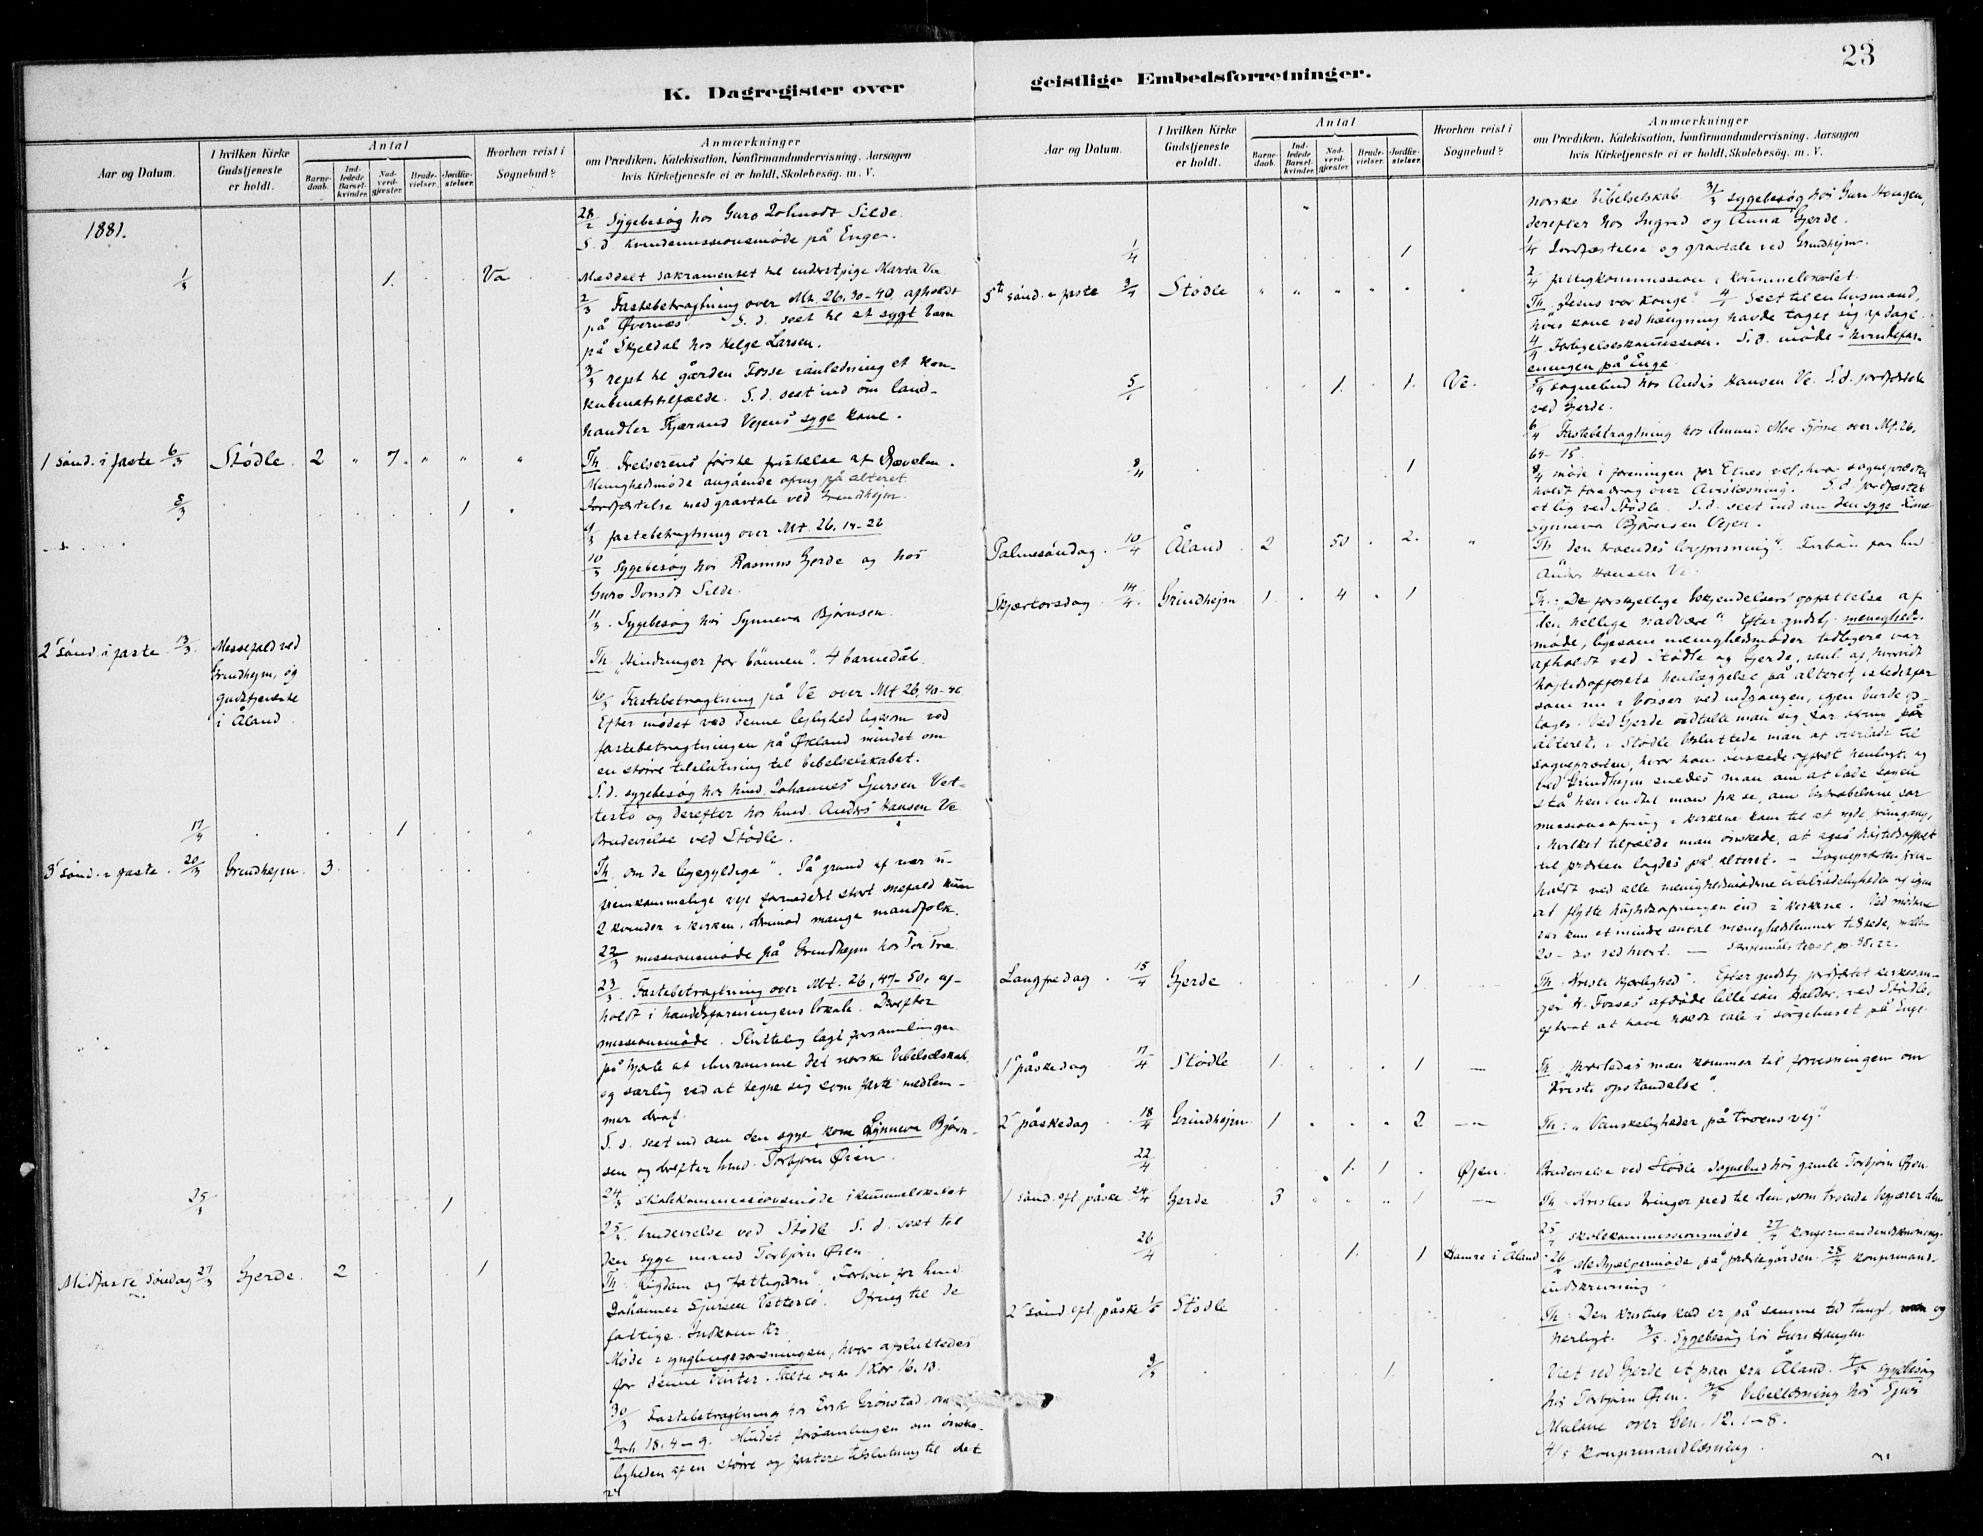 K. Dagregister over
geistlige Embedsforretninger.
23
Aar og Datum.
I hvilken Kirke Gudstjeneste er holdt.
Antal
Barnedaab.
Indledede Barselkvinder.
Nadverdgjester.
Brudevielser.
Jordfæstelser.
Hvorhen reist i Sognebud?
Anmærkninger
om Prædiken, Katekisation, Konfirmandundervisning, Aarsagen
hvis Kirketjeneste ei er holdt, Skolebesøg. m. V.
1881.
28/2 Sygebesøg hos Guro Johnsdt Silde.
S. d. kvindemissionsmøde på Enge.
1/3 1. Va Meddelt sakramentet til
2/3 Fastebetragtning over Mt. 26, 30-40, afholdt
på Øvernæs S. d. seet til et sygt barn
på Skjeldal hos Helge Larsen.
3/3 rejst til gården Fosse i anledning et kon-
kubinatstilfælde. S. d. seet ind om land-
handler Tjærand Vejens syge kone.
1 sønd. i faste 6/3 Stødle. 2 " 7. " " " Th. Frelserens første fristelse af Djævelen.
Menighedsmøde angående ofring på alteret.
8/3 1 Jordfæstelse med gravtale ved Grindhejm.
9/3 fastebetragtning over Mt. 26. 14-26
10/3 Sygebesøg hos Rasmus Gjerde og hos
Guro Jonsdt Silde.
11/3. Sygebesøg hos Synneva Bjørnsen.
2 sønd. i faste 13/3 Messefald ved
Grindhejm, og
gudstjeneste
i Åland.
Th. "Hindringer for bønnen". 4 barnedåb.
Fastebetragtning på Ve over Mt 26, 40-46
Efter mødet ved denne lejlighed ligesom ved
fastebetragtningen på Økland mindet om
en større tilslutning til bibelselskabet.
S. d. sygebesøg hos husm. Johannes Sjursen Vet-
testø og derefter hos husm. Anders Hansen Ve
17/ 1 Brudevielse ved Stødle.
3 sønd. i faste. 20/3 Grindhejm. 3. Th. om de ligegyldige". På grund af
vejr formedelst stort snefald kun
2 kvinder i kirken, derimod mange mandfolk.
22/3 missionsmøde på Grindhejm hos Tor
23/3. Fastebetragtning over Mt. 26, 47-50, af-
holdt i handelsforeningens lokale. Derefter
missionsmøde. Sluttelig lagt forsamlingen
på hjerte at det norske bibelselskab
og særlig ved at tegne sig som faste medlem-
mer deraf.
S. d. seet ind om den syge kone Synneva Bjørn-
sen og derefter husm. Torbjørn Øien.
24/3 skolekommissionsmøde i kommunelokalet
25/3 1 25/3 brudevielse ved Stødle S. d. seet til
den syge mand Torbjørn Øien.
Midfaste søndag 27/3 Gjerde. 2 1 Th. "Rigdom og fattigdom". Forbøn for husm.
Johannes Sjursen Vettestø. Ofring til de
fattige. Indkom Kr.
Møde i ynglingeforeningen, hvor afsluttedes
for denne vinter. Talte over 1 Kor 16. 13.
30/3 Fastebetragtning hos Erik Grønstad, over
Joh 18. 4-9. Mindet forsamlingen om ønske-
ligheden af en større og fastere tilslutning til det
Aar og Datum.
I hvilken Kirke Gudstjeneste er holdt.
Antal
Barnedaab.
Indledede Barselkvinder.
Nadverdgjester.
Brudevielser.
Jordfæstelser.
Hvorhen reist i Sognebud?
Anmærkninger
om Prædiken, Katekisation, Konfirmandundervisning, Aarsagen
hvis Kirketjeneste ei er holdt, Skolebesøg. m. V.
norske bibelselskab. 31/3 sygebesøg hos Guro Haugen,
derefter hos Ingrid og Anna Gjerde.
1/4 1 1/4 Jordfæstelse og gravtale ved Grindhejm.
2/4 fattigkommission i kommunelokalet.
5te sønd. i faste 3/4 Stødle " " " " " " Th. "Jesus vor konge". 4/4 Seet til en husmand,
hvis kone ved hængning havde taget sig af dage.
4/4 Forligelseskommission. S. d. møde i kvindefor-
eningen på Enge.
5/ 1. 1. Ve. 5/4 sognebud hos Anders Hansen Ve. S. d. jordfæstelse
ved Gjerde.
6/4 Fastebetragtning hos Amund Moe over Mt. 26,
8/4 1 8/4 møde i foreningen for Etnes vel, hvor sognepræsten
holdt foredrag over Avislæsning. S. d. jordfæstet
et lig ved Stødle. S. d. seet ind om den syge kone
Synneva Bjørnsen Vejen.
Palmesøndag. 10/4 Åland. 2 50 2. " Th den troendes lovprisning". Forbøn for hm
Anders Hansen Ve.
Skjærtorsdag 14/4. Grindhejm 1. 4 1 Th.: "De forskjellige bekjendelsers opfattelse af
den hellige nadvere" Efter gudstj. menigheds-
møde, ligesom menighedsmøder tidligere var
afholdt ved Stødle og Gjerde, hvorvidt
højtidsofferets henlæggelse på alteret, istedetfor
som nu i bøsser ved udgangen, igjen burde op-
tages. Ved Gjerde udtalte man sig for ofring på
alteret, i Stødle besluttede man at overlade til
sognepræsten, hvor han ønskede offret henlagt, og
ved Grindhejm enedes man om at lade sagen
stå hen indtil man fik se, om bestræbelserne for
missionsofring i kirkene kom til at nyde fremgang,
i hvilket tilfælde man ønskede, at også højtidsoffret
til præsten lagdes på alteret. - Sognepræsten frem-
holdt ved alle menighedsmøderne utilrådeligheden af igjen
at flytte højtidsofringen ind i kirkerne. Ved møderne
var kun et mindre antal menighedslemmer tilstede, mellem
20- ved hvert.
Langfredag. 15/4 Gjerde 1 Th. Kristi kjærlighed". Efter gudstj. jordfæstet kirkesan-
ger H. Fosses afdøde lille søn Haldor, ved Stødle,
efterat at have holdt tale i sørgehuset på Enge.
1 påskedag 17/4 Stødle 1. 1 Th. Hvorledes man kommer til forvisningen om
Kristi opstandelse".
2 påskedag 18/4 Grindhejm. 1 2 Th: "Vanskeligheder på troens vej"
22/4 1. 1. Øjen. Brudevielse ved Stødle. Sognebud hos gamle Torbjørn Øjen
1 sønd. eft. påske 24/4 Gjerde 3 1 Th. Kristus bringer fred til den, som troende begjærer den
25/4 skolekommissionsmøde 27/4 konfirmandindskrivning.
26/4 1. 1 Hamre i Åland 26/4 Medhjælpermøde på prestegården. 28/4 konfirmand-
indskrivning.
2 sønd eft. påske 1/5 Stødle Th: Den kristnes kald er på samme tid tungt og
herligt. 3/5. Sygebesøg hos Guro Haugen
1. Viet ved Gjerde et par fra Åland. 4/5 sygebesøg
hos Torbjørn Øien. Bibellæsning hos Sjurs
over Gen. 12. 1-8.
4/5 konfirmandlæsning.